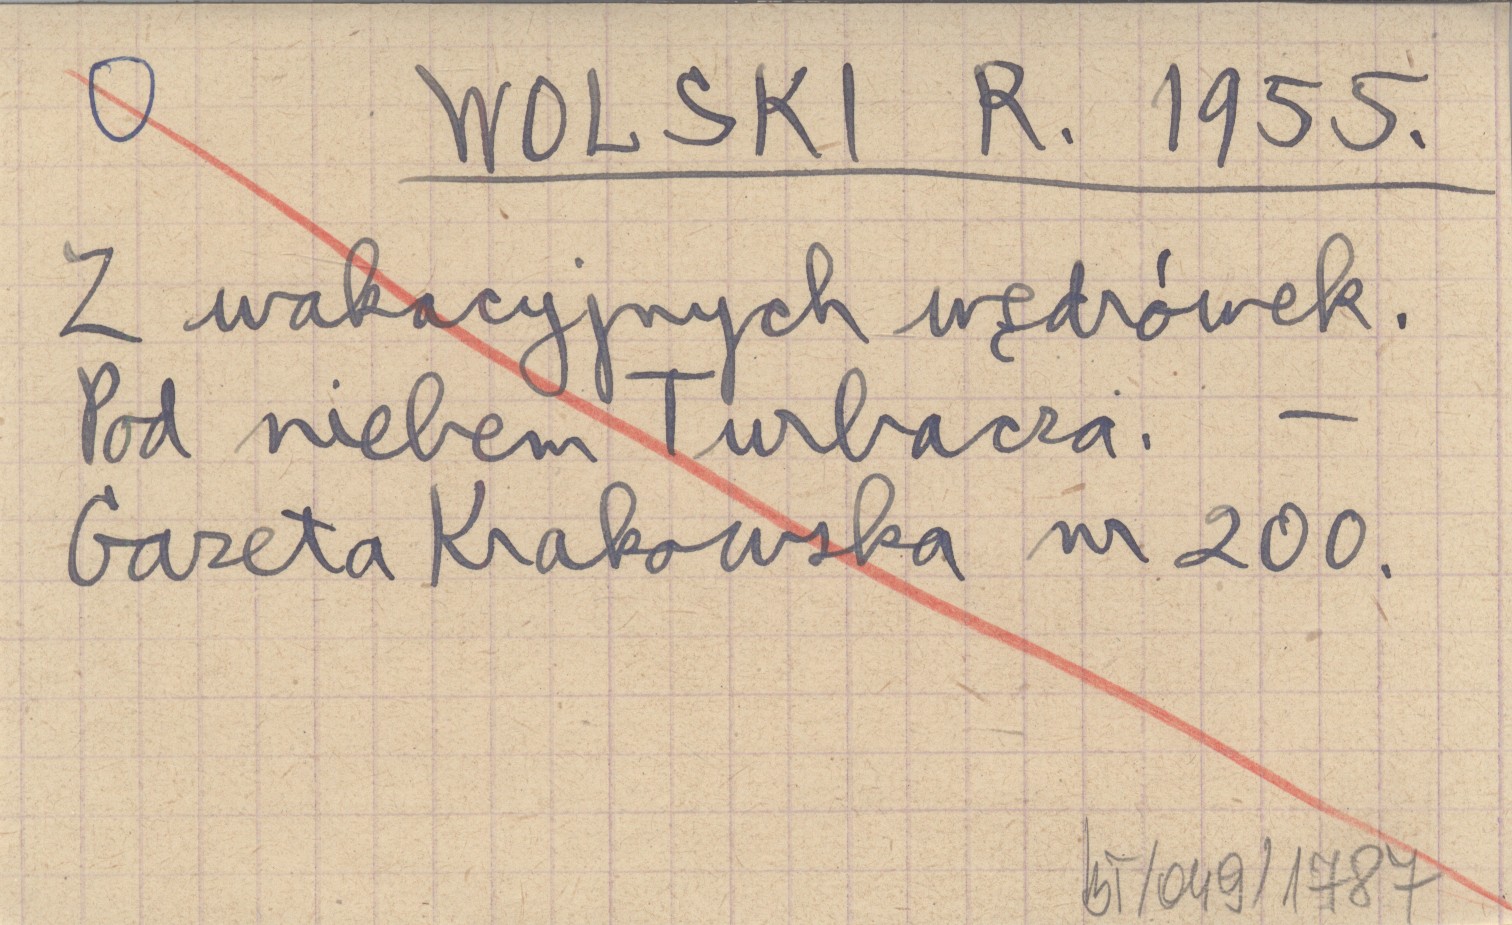 WOLSKI R. 1955.
Z wakacyjnych wędrówek.
Pod niebem Turbacza. —
Gazeta Krakowska nr 200.
BT/049/1787